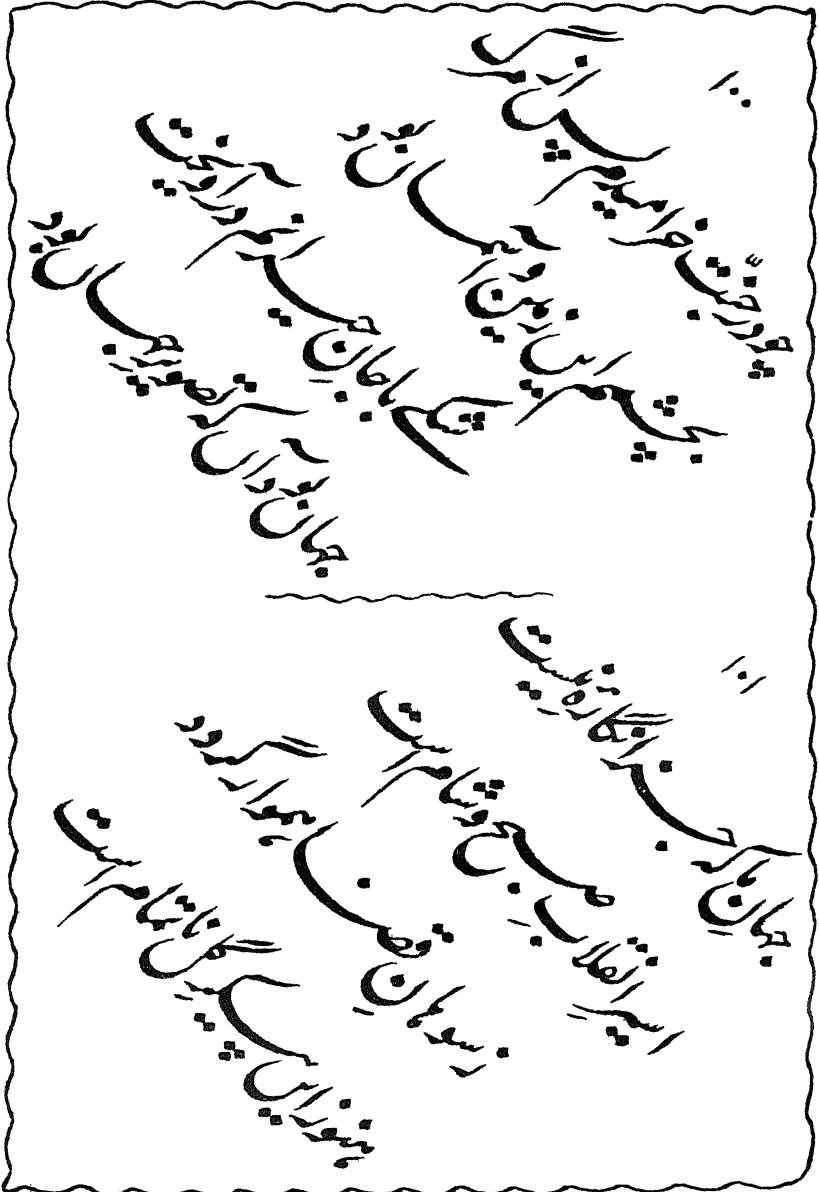 ۱۰۰
چو در جنّت خرامیدم پس از مرگ
بچشمم این زمین و آسمان بود
شکے با جانِ حیرانم در آویخت
جهان بود آن که تصویرِ جهان بود
۱۰۱
جهانِ ما که جز انگارهٔ نیست
اسیرِ انقلابِ صبح و شام است
ز سوهانِ قضا هموار گردد
هنوز این پیکرِ گل ناتمام است